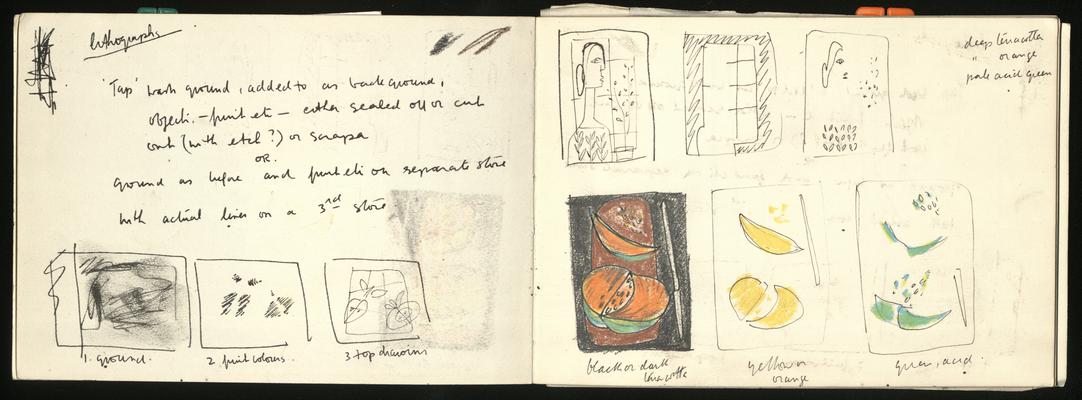 lithographs
'Tap' wash ground, added to as background,
objects. - fruit etc - either sealed off or cut
out (with etch?) or scrape
OR.
ground as before and fruit etc on separate stone
with actual lines on a 3rd stone.
1. ground.
2 fruit colours.
3 top drawing
deep terracotta
" orange
pale acid green
black or dark
terracotta
yellow
orange
green, acid.